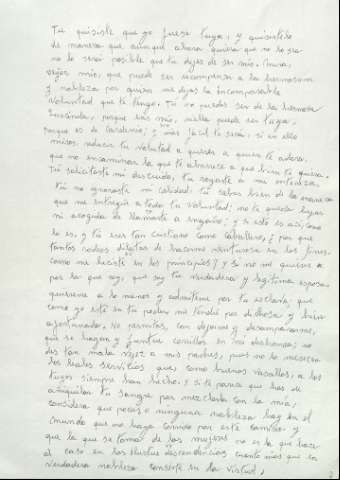 Tú quisiste que yo fuese tuya, y quisístelo
de manera que aunque ahora quieras que no lo sea
no le será posible que tú dejes de ser mío. Mira,
señor mío, que puede ser recompensa a la hermosura
y nobleza por quien me dejas la incomparable
voluntad que te tengo. Tú no puedes ser de la hermosa
Luscinda, porque eres mío, ni ella puede ser tuya,
porque es de Cardenio; y más fácil te será, si en ello
miras, reducir tu voluntad a querer a quien te adora,
que no encaminar la que te aborrece a que bien te quiera.
Tú solicitaste mi descuido, tú rogaste a mi entereza,
tú no ignoraste mi calidad, tú sabes bien de la manera
que me entregué a toda tu voluntad; no te queda lugar
ni acogida de llamarte a engaño; y si esto es así, como
lo es, y tú eres tan cristiano como caballero, ¿por qué
tantos rodeos dilatas de hacerme venturosa en los fines,
como me hiciste en los principios? Y si no me quieres a
por la que soy, que soy tu verdadera y legítima esposa
quiéreme a lo menos y admíteme por tu esclava; que
como yo esté en tu poder, me tendré por dichosa y bien
afortunada. No permitas, con dejarme y desampararme,
que se hagan y junten corrillos en mi deshonra; no
des tan mala vejez a mis padres, pues no lo merecen
los leales servicios que, como buenos vasallos, a los
tuyos siempre han hecho. Y si te parece que has de
aniquilar tu sangre por mezclarla con la mía,
considera que pocas o ninguna nobleza hay en el
mundo que no haya corrido por este camino y
que la que se toma de las mujeres no es la que hace
al caso en las ilustres descendencias cuanto más que la
verdadera nobleza consiste en la virtud,